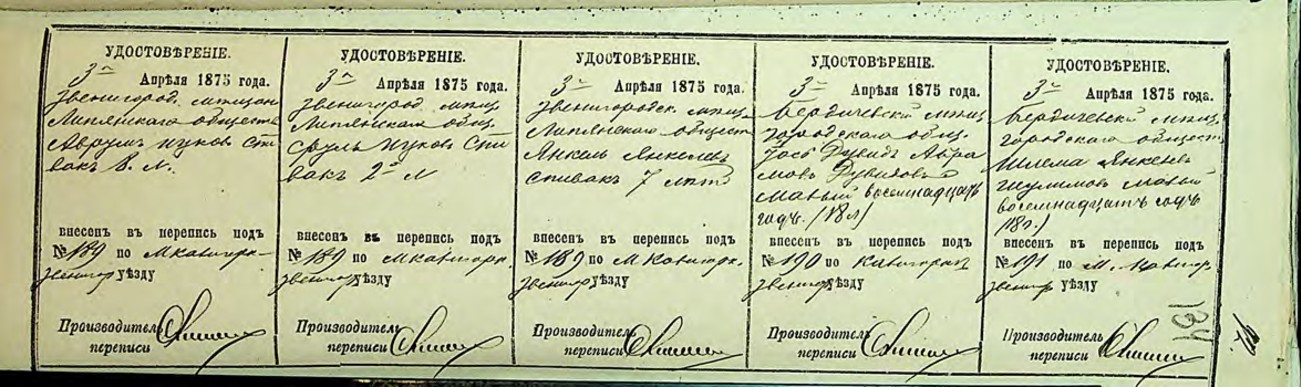 УДОСТОВѢРЕНІЕ.
3го Апрѣля 1875 года.
Звенигород. мѣщан
Липянскаго обществ
Аврумъ Ицковъ Спи
вакъ 8. л.
внесенъ въ перепись подъ
№ 189 по М Кавигорк
Звенигор уѣзду
Производитель
переписи
УДОСТОВѢРЕНІЕ.
3го Апрѣля 1875 года.
Звенигород. мѣщ
Липянскаго общ.
Сруль Ицковъ Спи
вакъ 2 л
внесенъ въ перепись подъ
№ 189 по М Кавигорк.
Звенигор уѣзду
Производитель
переписи
УДОСТОВѢРЕНІЕ.
3го Апрѣля 1875 года.
Звенигородск. мѣщ.
Липянскаго обществ
Янкель Янкелев
Спивакъ 7 лѣтъ
внесенъ въ перепись подъ
№ 189 по М Кавигорк.
Звенигор уѣзду
Производитель
переписи
УДОСТОВѢРЕНІЕ.
3го Апрѣля 1875 года.
Бердичевскій мѣщ
городскаго общ.
Іось Дувидъ Авра
мовъ
восемнадцать
годъ. /18 л/
внесенъ въ перепись подъ
№ 190 по Кавигорк
Звенигор уѣзду
Производитель
переписи
УДОСТОВѢРЕНІЕ.
3го Апрѣля 1875 года.
Бердичевскій мѣщ.
городскаго обществ
Шлема Янкелев
восемнадцать годъ
/18 л./
внесенъ въ перепись подъ
№ 191 по М. Кавигор
Звенигор уѣзду
Производитель
переписи